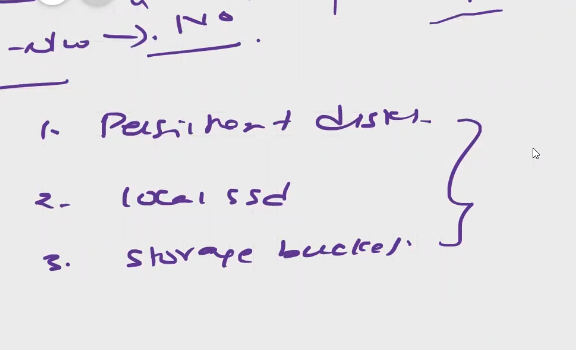 →. No.
1. Persistent disks.
2. local ssd
3. storage bucket.